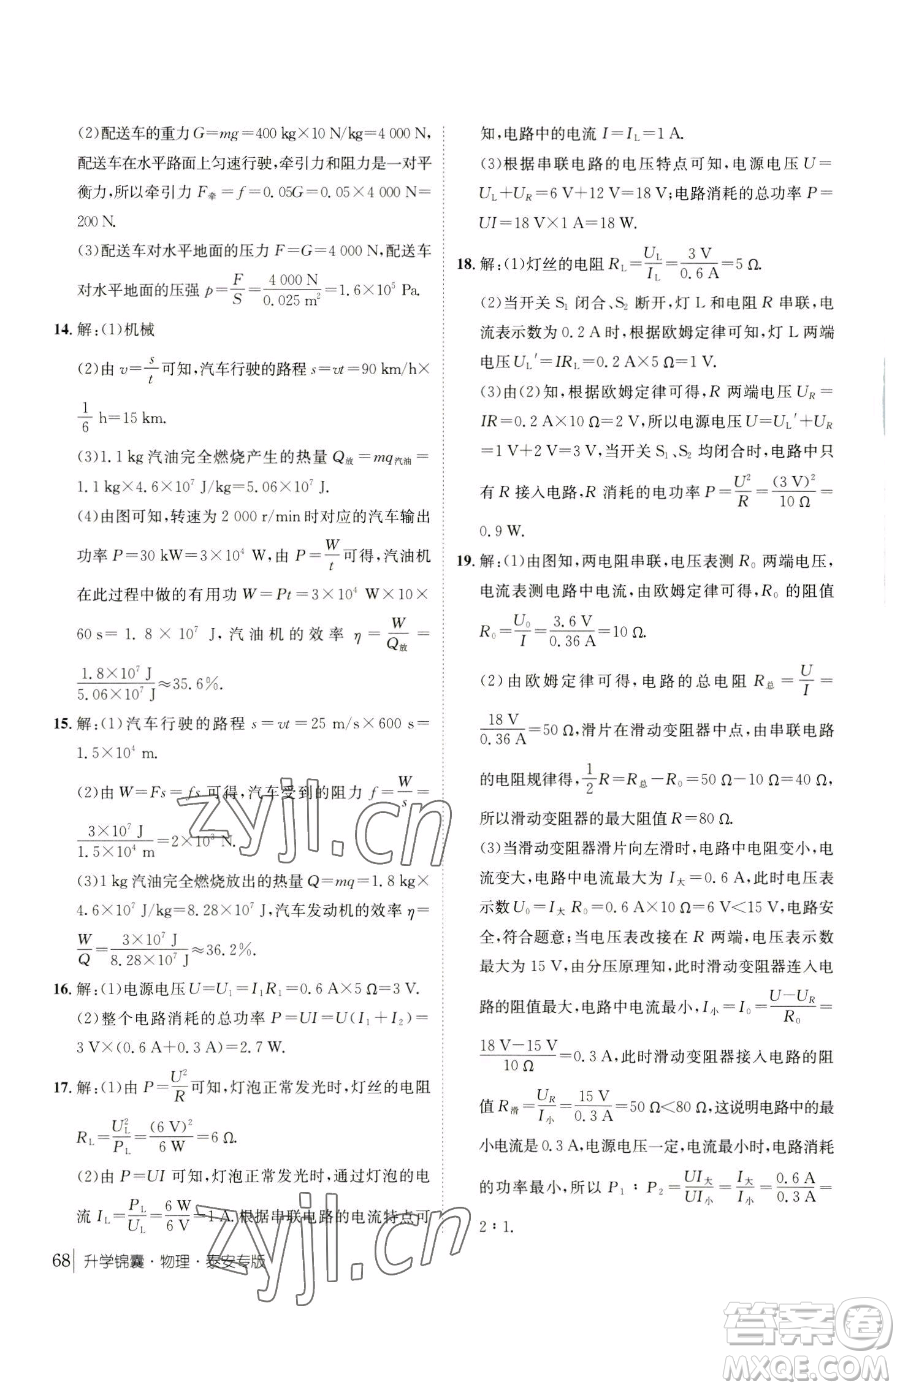 (2)配送车的重力 G=mg=400 kg×10 N/kg=4 000 N,
配送车在水平路面上匀速行驶,牵引力和阻力是一对平
衡力,所以牵引力 F牵=f=0.05G=0.05×4 000 N=
200 N.
(3)配送车对水平地面的压力 F=G=4 000 N,配送车
对水平地面的压强 p=F/S=4 000 N/0.025 m²=1.6×10⁵ Pa.
14. 解:(1)机械
(2)由 v=s/t可知,汽车行驶的路程 s=vt=90 km/h×
1/6 h=15 km.
(3)1.1 kg 汽油完全燃烧产生的热量 Q放=mq汽油=
1.1 kg×4.6×10⁷ J/kg=5.06×10⁷ J.
(4)由图可知,转速为 2 000 r/min 时对应的汽车输出
功率 P=30 kW=3×10⁴ W,由 P=W/t可得,汽油机
在此过程中做的有用功 W=Pt=3×10⁴ W×10×
60 s=1.8×10⁷ J,汽油机的效率 η=W/Q放=
1.8×10⁷ J/5.06×10⁷ J≈35.6%.
15. 解:(1)汽车行驶的路程 s=vt=25 m/s×600 s=
1.5×10⁴ m.
(2)由 W=Fs=fs 可得,汽车受到的阻力 f=W/s=
3×10⁷ J/1.5×10⁴ m=2×10³ N.
(3)1 kg 汽油完全燃烧放出的热量 Q=mq=1.8 kg
×4.6×10⁷ J/kg=8.28×10⁷ J,汽车发动机的效率 η=
W/Q=3×10⁷ J/8.28×10⁷ J≈36.2%.
16. 解:(1)电源电压 U=U₁=I₁R₁=0.6 A×5 Ω=3 V.
(2)整个电路消耗的总功率 P=UI=U(I₁+I₂)=
3 V×(0.6 A+0.3 A)=2.7 W.
17. 解:(1)由 P=U²/R可知,灯泡正常发光时,灯丝的电阻
R_L=U_L²/P_L=(6 V)²/6 W=6 Ω.
(2)由 P=UI 可知,灯泡正常发光时,通过灯芯的电
流 I_L=P_L/U_L=6 W/6 V=1 A.根据串联电路的电流特点可
68 升学锦囊·物理·泰安专版
知,电路中的电流 I=I_L=1 A.
(3)根据串联电路的电压特点可知,电源电压 U=
U_L+U_R=6 V+12 V=18 V;电路消耗的总功率 P=
UI=18 V×1 A=18 W.
18. 解:(1)灯丝的电阻 R_L=U_L/I_L=3 V/0.6 A=5 Ω.
(2)当开关 S₁ 闭合、S₂ 断开,灯 L 和电阻 R 串联,电
流表示数为 0.2 A 时,根据欧姆定律可知,灯 L 两端
电压 U_L′=IR_L=0.2 A×5 Ω=1 V.
(3)由(2)知,根据欧姆定律可得,R 两端电压 U_R=
IR=0.2 A×10 Ω=2 V,所以电源电压 U=U_L′+U_R
=1 V+2 V=3 V,当开关 S₁、S₂ 均闭合时,电路中只
有 R 接入电路,R 消耗的电功率 P=U²/R=(3 V)²/10 Ω=
0.9 W.
19. 解:(1)由图知,两电阻串联,电压表测 R₀ 两端电压,
电流表测电路中电流,由欧姆定律可得,R₀ 的阻值
R₀=U₀/I=3.6 V/0.36 A=10 Ω.
(2)由欧姆定律可得,电路的总电阻 R总=U/I=
18 V/0.36 A=50 Ω,滑片在滑动变阻器中点,由串联电路
的电阻规律得,1/2R=R总-R₀=50 Ω-10 Ω=40 Ω,
所以滑动变阻器的最大阻值 R=80 Ω.
(3)当滑动变阻器滑片向左滑时,电路中电阻变小,电
流变大,电路中电流最大为 I大=0.6 A,此时电压表
示数 U₀=I大R₀=0.6 A×10 Ω=6 V<15 V,电路安
全,符合题意;当电压表改接在 R 两端,电压表示数
最大为 15 V,由分压原理知,此时滑动变阻器连入电
路的阻值最大,电路中电流最小,I小=I₀=(U-U_R)/R₀=
(18 V-15 V)/10 Ω=0.3 A,此时滑动变阻器接入电路的阻
值 R滑=U_R/I小=15 V/0.3 A=50 Ω<80 Ω,这说明电路中的最
小电流是0.3 A,电源电压一定,电流最小时,电路消耗
的功率最小,所以 P₁∶P₂=UI大/UI小=I大/I小=0.6 A/0.3 A=
2∶1.
zyjl.cn
zyjl.cn
答案圈
MXQE.COM